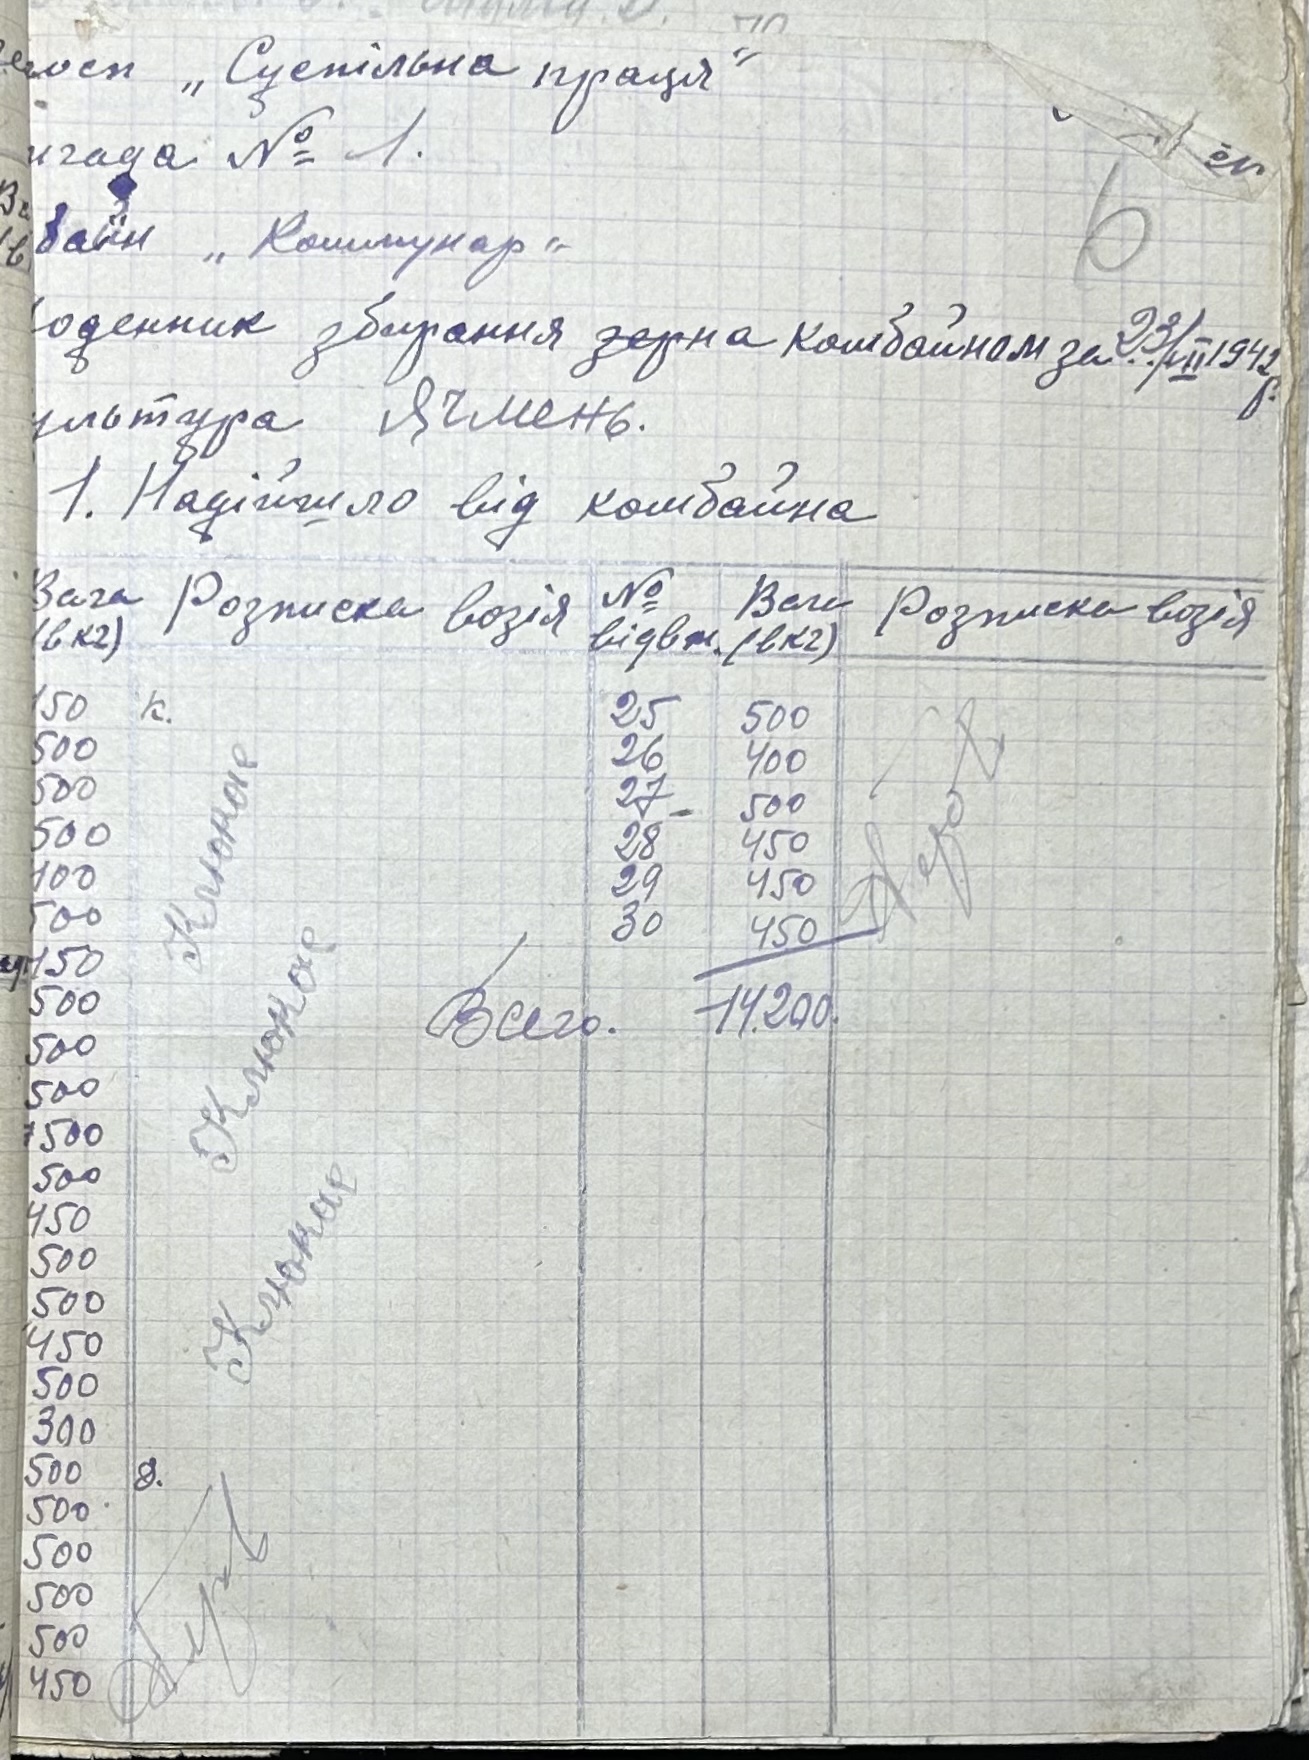 „Суспільна праця"
игада № 1.
байн „Коммунар"
оденник збирання зерна комбайном за 23/VII 1942 р.
ультура Ячмень.
1. Надійшло від комбайна
Вага (в кг) Розписка возія № відвж. Вага (вкг) Розписка возія
150 к. 25 500
500 26 400
500 27 500
500 28 450
400 29 450
500 30 450
450
500 Всего. 14.200.
500
500
500
500
450
500
500
450
500
300
500 д.
500
500
500
500
450
Клюкає
Клюкає
Клюкає
6